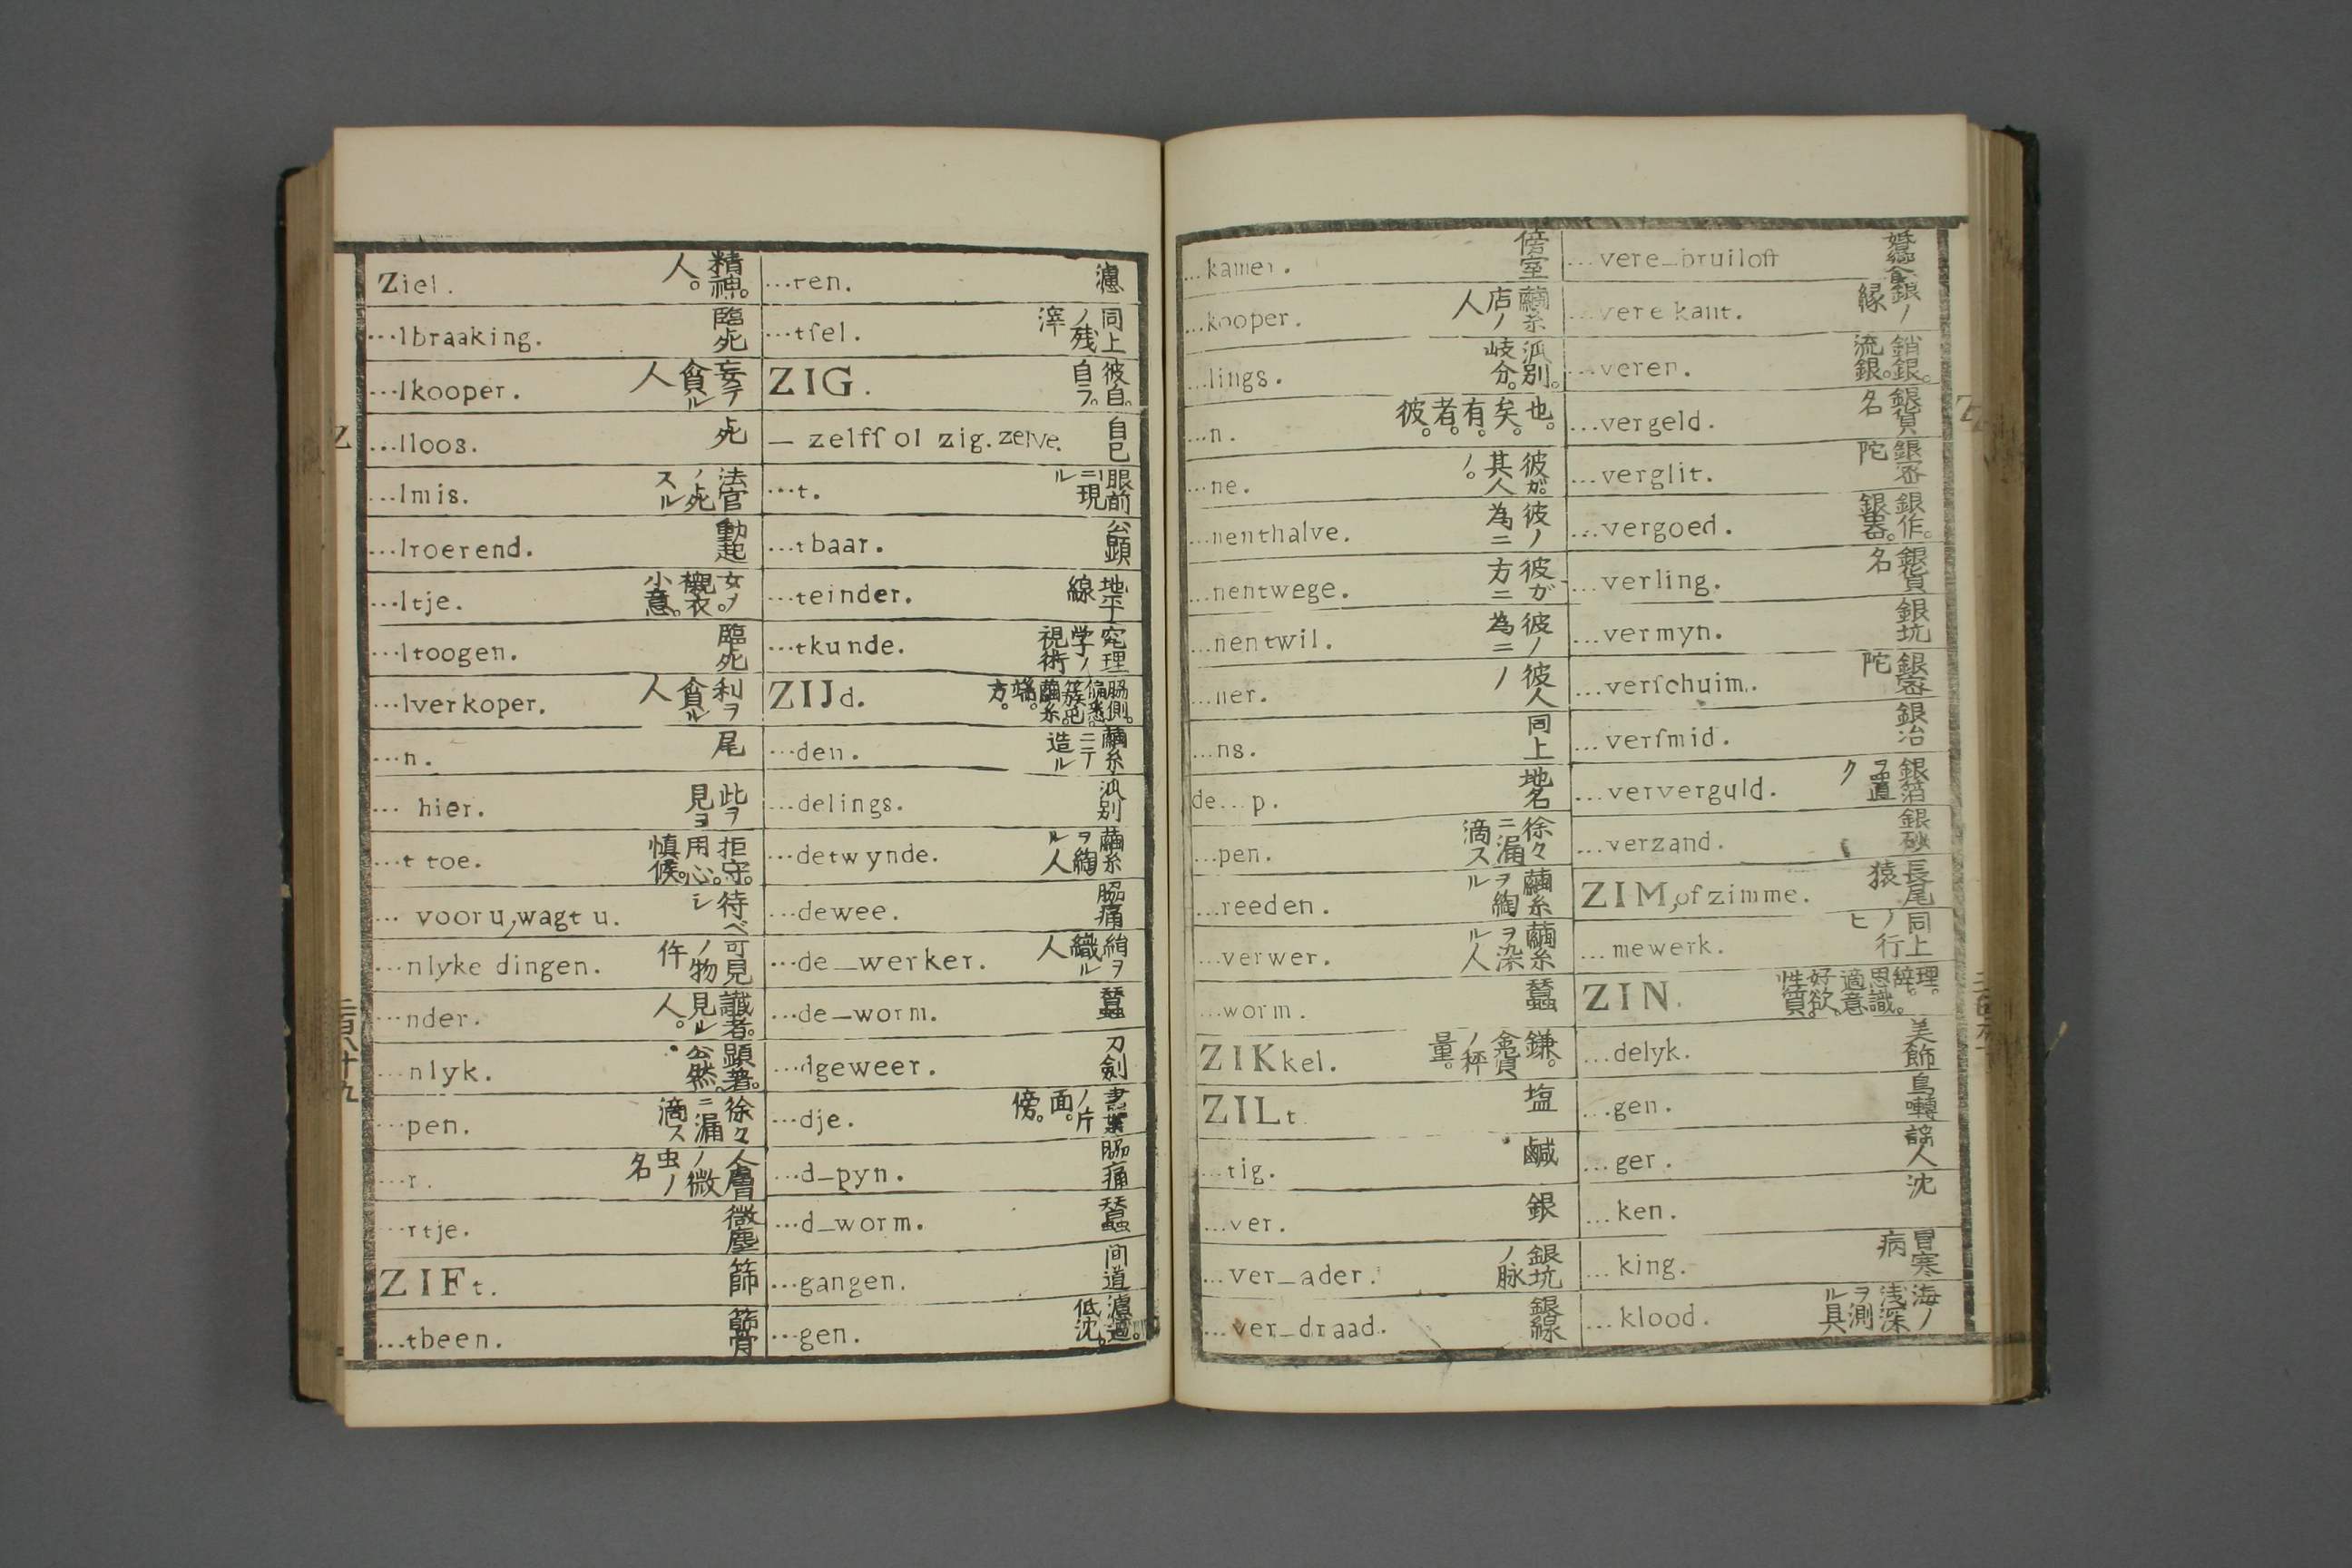 Ziel. 精神。人。
...lbraaking. 臨死
...lkooper. 妄テ貪ル人
...lloos. 死
...lmis. 法官ノ死スル
...lroerend. 動起
...ltje. 女ノ襯衣。小意。
...ltoogen. 臨死
...lverkoper. 利ヲ貪ル人
...n. 尾
... hier. 此ヲ見ヨ
...t toe. 拒守。用心。慎候。
... voor u, wagt u. 待ベシ
...nlyke dingen. 可見ノ物件
...nder. 識者。見ル人。
...nlyk. 顕著。公然。
...pen. 徐々ニ漏滴ス
...r. 人膚ノ微虫ノ名
...rtje. 微塵
ZIFt. 篩
...tbeen. 篩骨
...ren. 濾
...tſel. 同上ノ残滓
ZIG. 彼自。自ラ。
— zelfſ of zig. zelve. 自己
...t. 眼前ニ現ル
...tbaar. 公顕
...teinder. 地平線
...tkunde. 究理学ノ視術
ZIJd. 脇側。繭糸。端。方。
...den. 繭糸ニテ造ル
...delings. 派別
...detwynde. 繭糸ヲ綯ル人
...dewee. 脇痛
...de_werker. 絹ヲ織ル人
...de_worm. 蠶
...dgeweer. 刀剣
...dje. 書葉ノ片面。傍。
...d_pyn. 脇痛
...d_worm. 蠶
...gangen. 间道
...gen. 濾過。低沈。
Z
二百八十九
...kamer. 傍室
...kooper. 繭糸店ノ人
...lings. 派別。岐分。
...n. 也。矣。有。者。彼。
...ne. 彼ガ。其人ノ。
...nenthalve. 彼ノ為ニ
...nentwege. 彼ガ方ニ
...nentwil. 彼ノ為ニ
...ner. 彼人ノ
...ns. 同上
de...p. 地名
...pen. 徐々ニ漏滴ス
...reeden. 繭糸ヲ綯ル
...verwer. 繭糸ヲ染ル人
...worm. 蠶
ZIKkel. 鎌。金貨ノ秤量。
ZILt 塩
...tig. 鹹
...ver. 銀
...ver_ader. 銀坑ノ脉
...ver_draad. 銀線
...vere_bruiloft
...vere kant. 銀ノ縁
...veren. 銷銀。流銀。
...vergeld. 銀貨名
...verglit. 銀密陀
...vergoed. 銀作。銀器。
...verling. 銀貨名
...vermyn. 銀坑
...verſchuim. 銀密陀
...verſmid. 銀冶
...ververguld. 銀箔ヲ置ク
...verzand. 銀砂
ZIM, of zimme. 長尾猿
...mewerk. 同上ノ行ヒ
ZIN. 理。辞。思識。適意。好欲。性質。
...delyk. 美飾
...gen. 鳥囀
...ger. 謡人
...ken. 沈
...king. 冒寒病
...klood. 海ノ浅深ヲ測ル具
Z